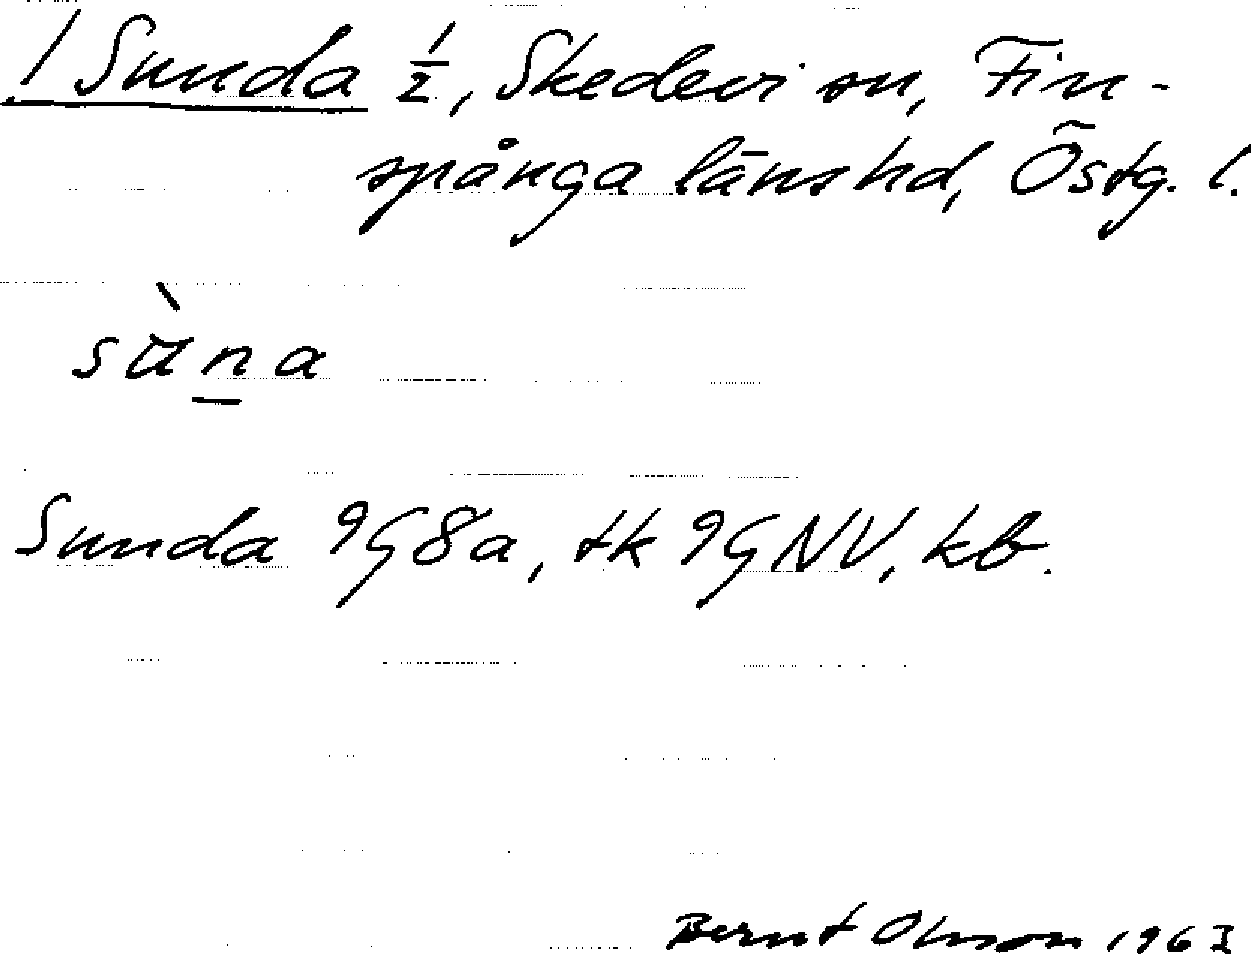 / Sunda 1/2, Skedevi sn, Fin-
spånga länshd, Östg. l.
sùna
Sunda 9G8a, tk 9GNV, kb.
Bernt Olsson 1967